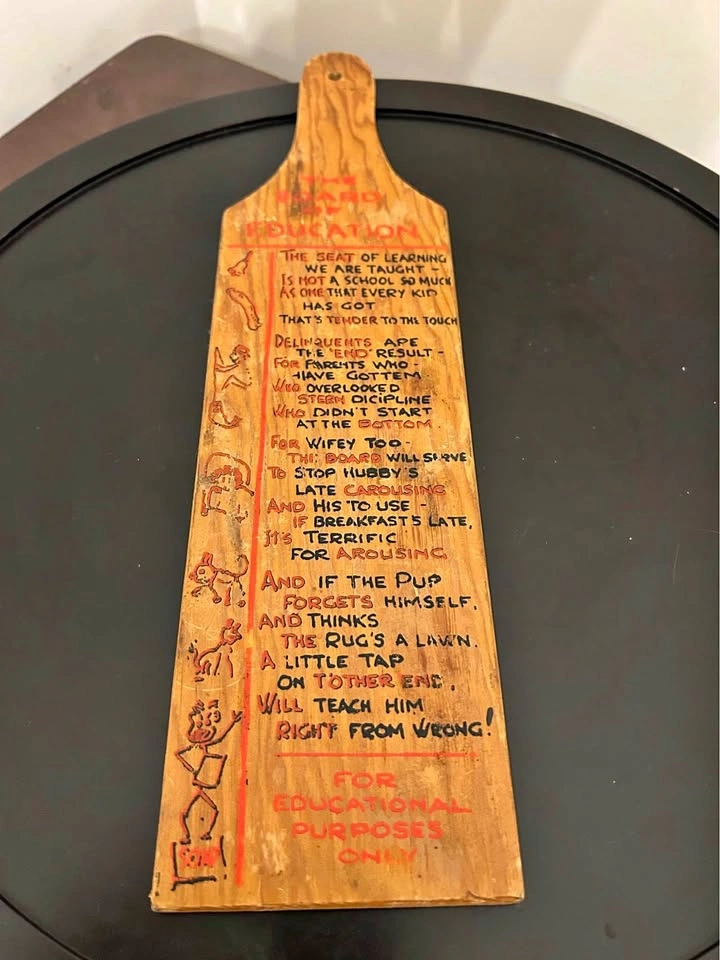 THE
BOARD
OF
EDUCATION
THE SEAT OF LEARNING
WE ARE TAUGHT -
IS NOT A SCHOOL SO MUCH
AS ONE THAT EVERY KID
HAS GOT
THAT'S TENDER TO THE TOUCH
DELINQUENTS ARE
THE "END" RESULT -
FOR PARENTS WHO -
HAVE GOTTEM
WHO OVERLOOKED
STERN DICIPLINE
WHO DIDN'T START
AT THE BOTTOM.
FOR WIFEY TOO -
THE BOARD WILL SERVE
TO STOP HUBBY'S
LATE CAROUSING
AND HIS TO USE -
IF BREAKFAST'S LATE,
IT'S TERRIFIC
FOR AROUSING
AND IF THE PUP
FORGETS HIMSELF,
AND THINKS
THE RUG'S A LAWN.
A LITTLE TAP
ON T'OTHER END,
WILL TEACH HIM
RIGHT FROM WRONG!
FOR
EDUCATIONAL
PURPOSES
ONLY